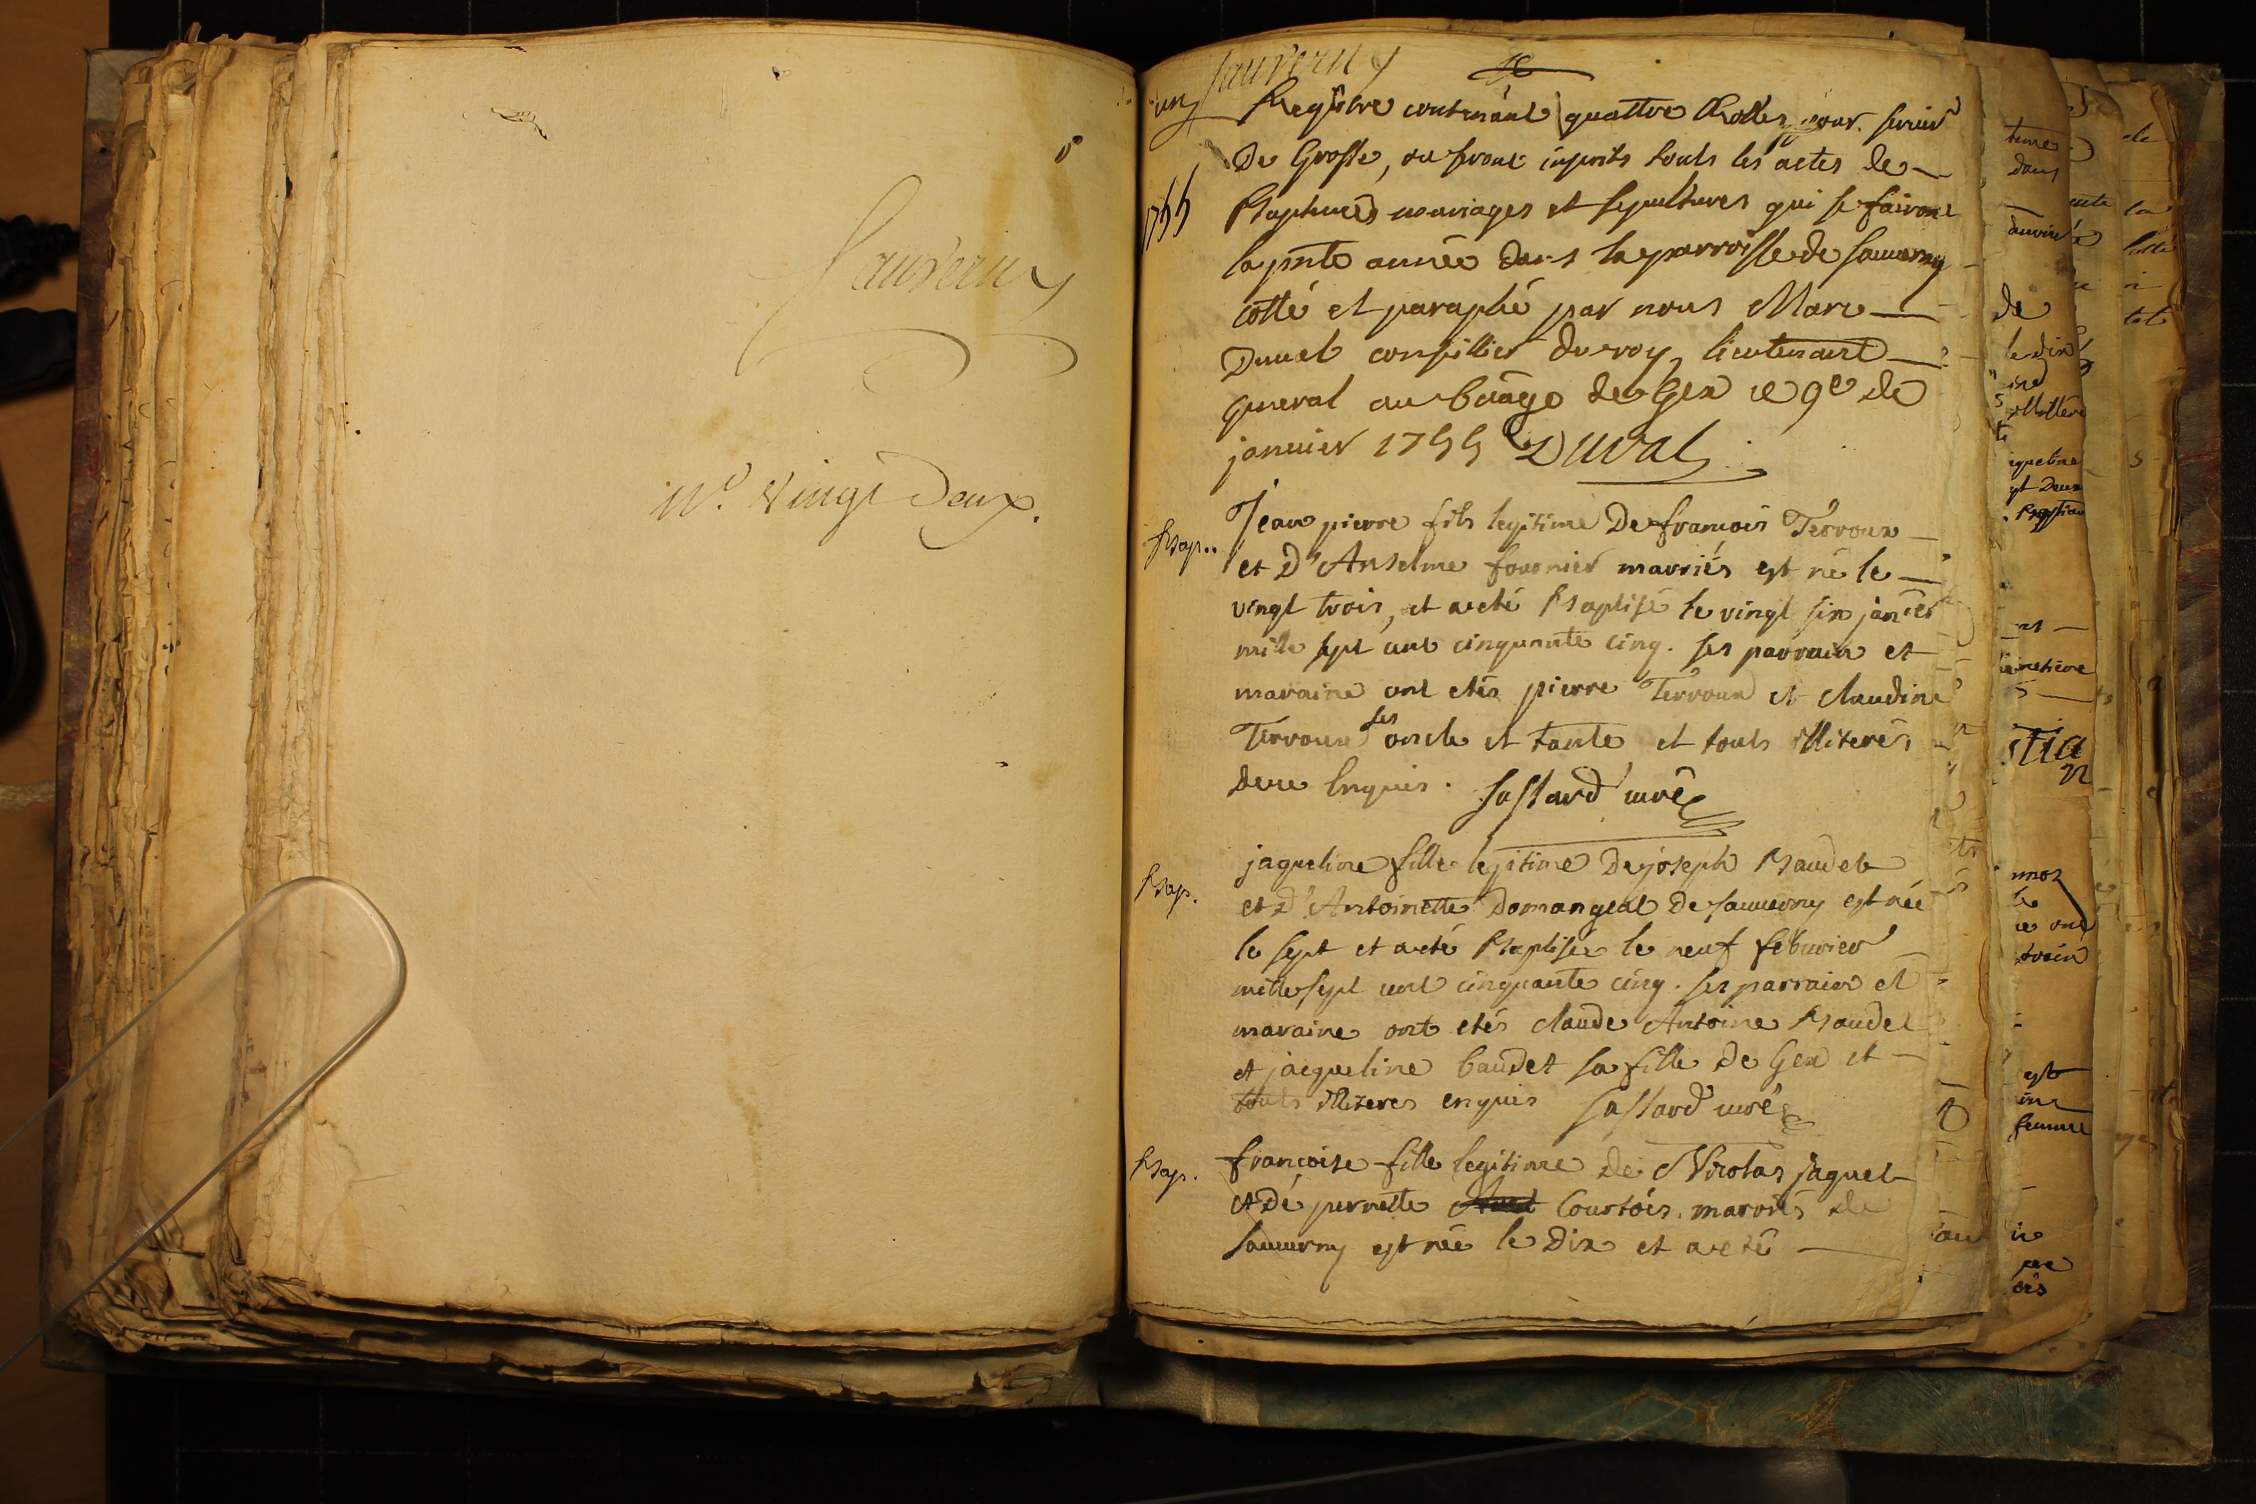 Sauverny
N.o Vingt Deux.
Sauverny
un
Registre contenant quattre Rolles pour servir
De Grosse, ou seront inscrits touts les actes de
1755
Baptumes mariages et sepultures qui se fairont
la pnte année dans la parroisse de Sauverny
cotté et paraphé par nous Marc
Duval conseillier du roy, lieutenant
general au baage de Gex ce 9e de
janvier 1755 Duval
Bap..
Jean pierre fils legitime De francois Terroux
et D'Anselme fournier marriés est né le
vingt trois, et a eté Baptisé le vingt six janier
mille sept cent cinquante cinq. ses parrain et
maraine ont etés pierre Terroux et claudine
Terroux ses oncle et tante et touts illiterés
De ce Enquis. Sassard curé
Bap.
jaqueline fille legitime De joseph Baudet
et D'Antoinette Domangeat De sauverny est née
le sept et a eté Baptisée le neuf febvrier
mille sept cent cinquante cinq. ses parrain et
maraine ont etés claude Antoine Baudet
et jacqueline baudet sa fille de Gex et
touts illiteres enquis Sassard curé
Bap.
francoise fille legitime de Nicolas jaquet
et De pernette Courtois marriés de
Sauverny est née le Dix et a eté